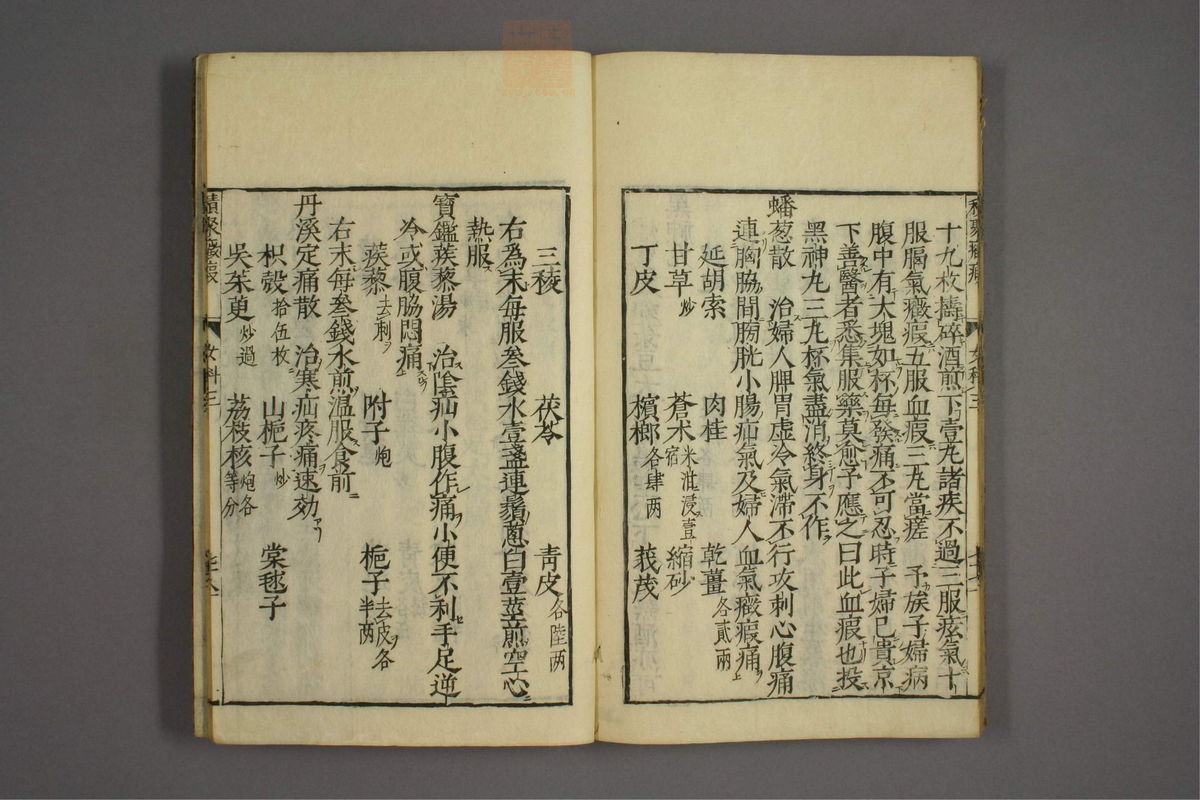 十九枚擣碎酒煎下壹丸諸疾不過三服痃氣十
服膈氣癥瘕五服血瘕三丸當瘥 予族子婦病
腹中有大塊如杯每發痛不可忍時子婦已貴京
下善醫者悉集服藥莫愈予應之曰此血瘕也投
黑神丸三丸杯氣盡消終身不作
蟠葱散 治婦人脾胃虛冷氣滯不行攻刺心腹痛
連胸脇間膀胱小腸疝氣及婦人血氣癥瘕痛
延胡索 肉桂 乾薑各貳兩
甘草炒 蒼朮米泔浸壹宿 縮砂
丁皮 檳榔各肆两 莪茂
三稜 茯苓 青皮各陸两
右爲末每服叄錢水壹盞連鬚蔥白壹莖煎空心
熱服
寶鑑蒺藜湯 治陰疝小腹作痛小便不利手足逆
冷或腹脇悶痛
蒺藜去刺 附子炮 梔子去皮各半两
右末每叄錢水煎温服食前
丹溪定痛散 治寒疝疼痛速効
枳殼拾伍枚 山梔子炒 棠毬子
吳茱萸炒過 荔枝核炮各等分
積聚癥瘕 女科三